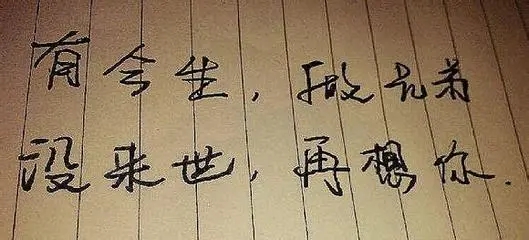 有今生，做兄弟
没来世，再想你.